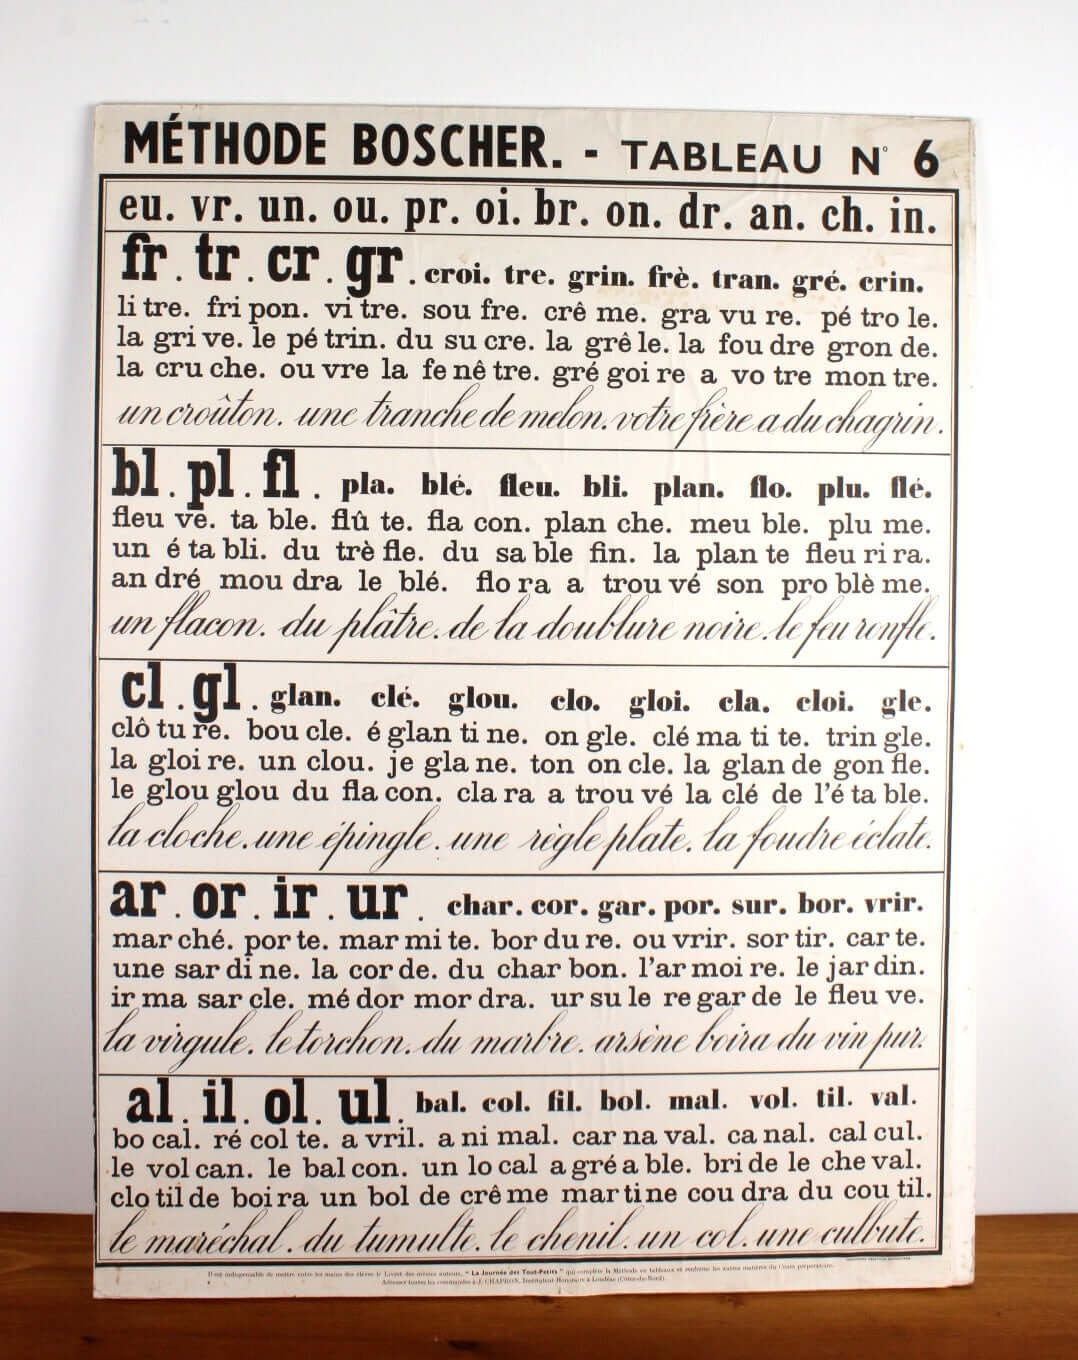 MÉTHODE BOSCHER. - TABLEAU N° 6
eu. vr. un. ou. pr. oi. br. on. dr. an. ch. in.
fr. tr. cr. gr. croi. tre. grin. frè. tran. gré. crin.
li tre. fri pon. vi tre. sou fre. crê me. gra vu re. pé tro le.
la gri ve. le pé trin. du su cre. la grê le. la fou dre gron de.
la cru che. ou vre la fe nê tre. gré goi re a vo tre mon tre.
un croûton. une tranche de melon. votre frère a du chagrin.
bl. pl. fl. pla. blé. fleu. bli. plan. flo. plu. flé.
fleu ve. ta ble. flû te. fla con. plan che. meu ble. plu me.
un é ta bli. du trè fle. du sa ble fin. la plan te fleu ri ra.
an dré mou dra le blé. flo ra a trou vé son pro blè me.
un flacon. du plâtre. de la doublure noire. le feu ronfle.
cl. gl. glan. clé. glou. clo. gloi. cla. cloi. gle.
clô tu re. bou cle. é glan ti ne. on gle. clé ma ti te. trin gle.
la gloi re. un clou. je gla ne. ton on cle. la glan de gon fle.
le glou glou du fla con. cla ra a trou vé la clé de l'é ta ble.
la cloche. une épingle. une règle plate. la foudre éclate.
ar. or. ir. ur. char. cor. gar. por. sur. bor. vrir.
mar ché. por te. mar mi te. bor du re. ou vrir. sor tir. car te.
une sar di ne. la cor de. du char bon. l'ar moi re. le jar din.
ir ma sar cle. mé dor mor dra. ur su le re gar de le fleu ve.
la virgule. le torchon. du marbre. arsène boira du vin pur.
al. il. ol. ul. bal. col. fil. bol. mal. vol. til. val.
bo cal. ré col te. a vril. a ni mal. car na val. ca nal. cal cul.
le vol can. le bal con. un lo cal a gré a ble. bri de le che val.
clo til de boi ra un bol de crê me mar tine cou dra du cou til.
le maréchal. du tumulte. le chenil. un col. une culbute.
Il est indispensable de mettre entre les mains des élèves le Livret des mêmes auteurs, "La Journée des Tout-Petits" qui complète la Méthode en tableaux et renferme les autres matières du Cours préparatoire.
Adresser toutes les commandes à J. CHAPRON, Instituteur Honoraire à Loudéac (Côtes-du-Nord).